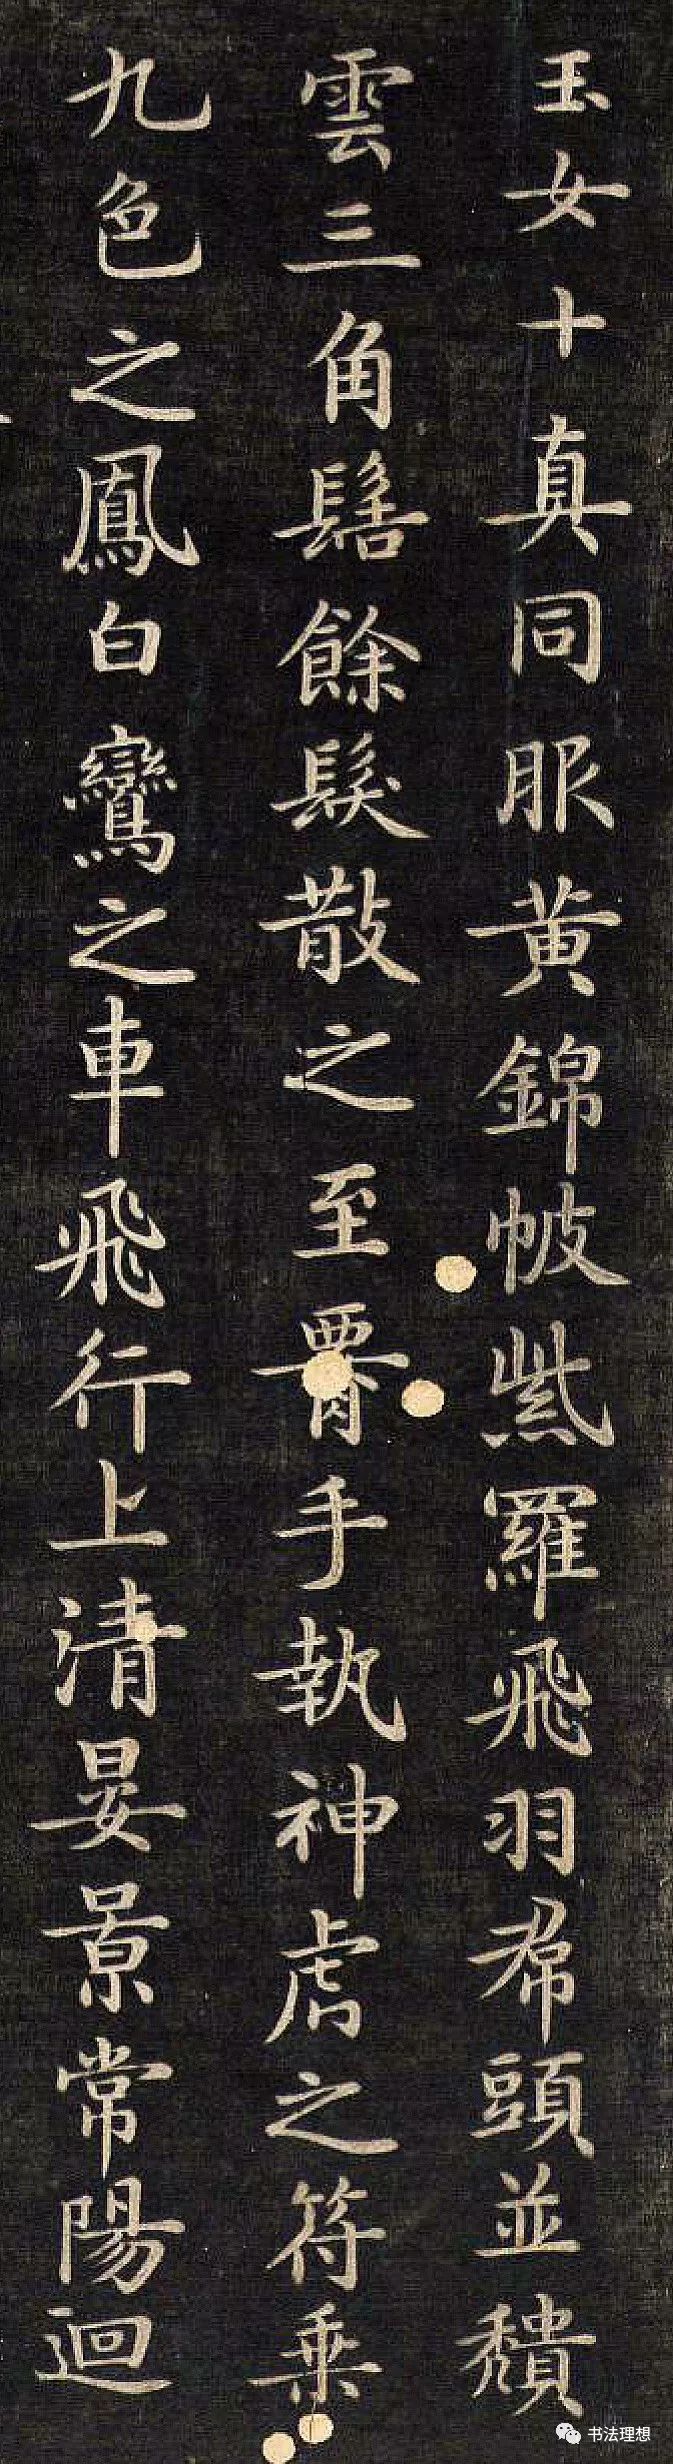 玉女十真同服黄錦帔紫羅飛羽帬頭並穨
雲三角髻餘髮散之至腰手執神虎之符乗
九色之鳳白鸞之車飛行上清晏景常陽迴
书法理想